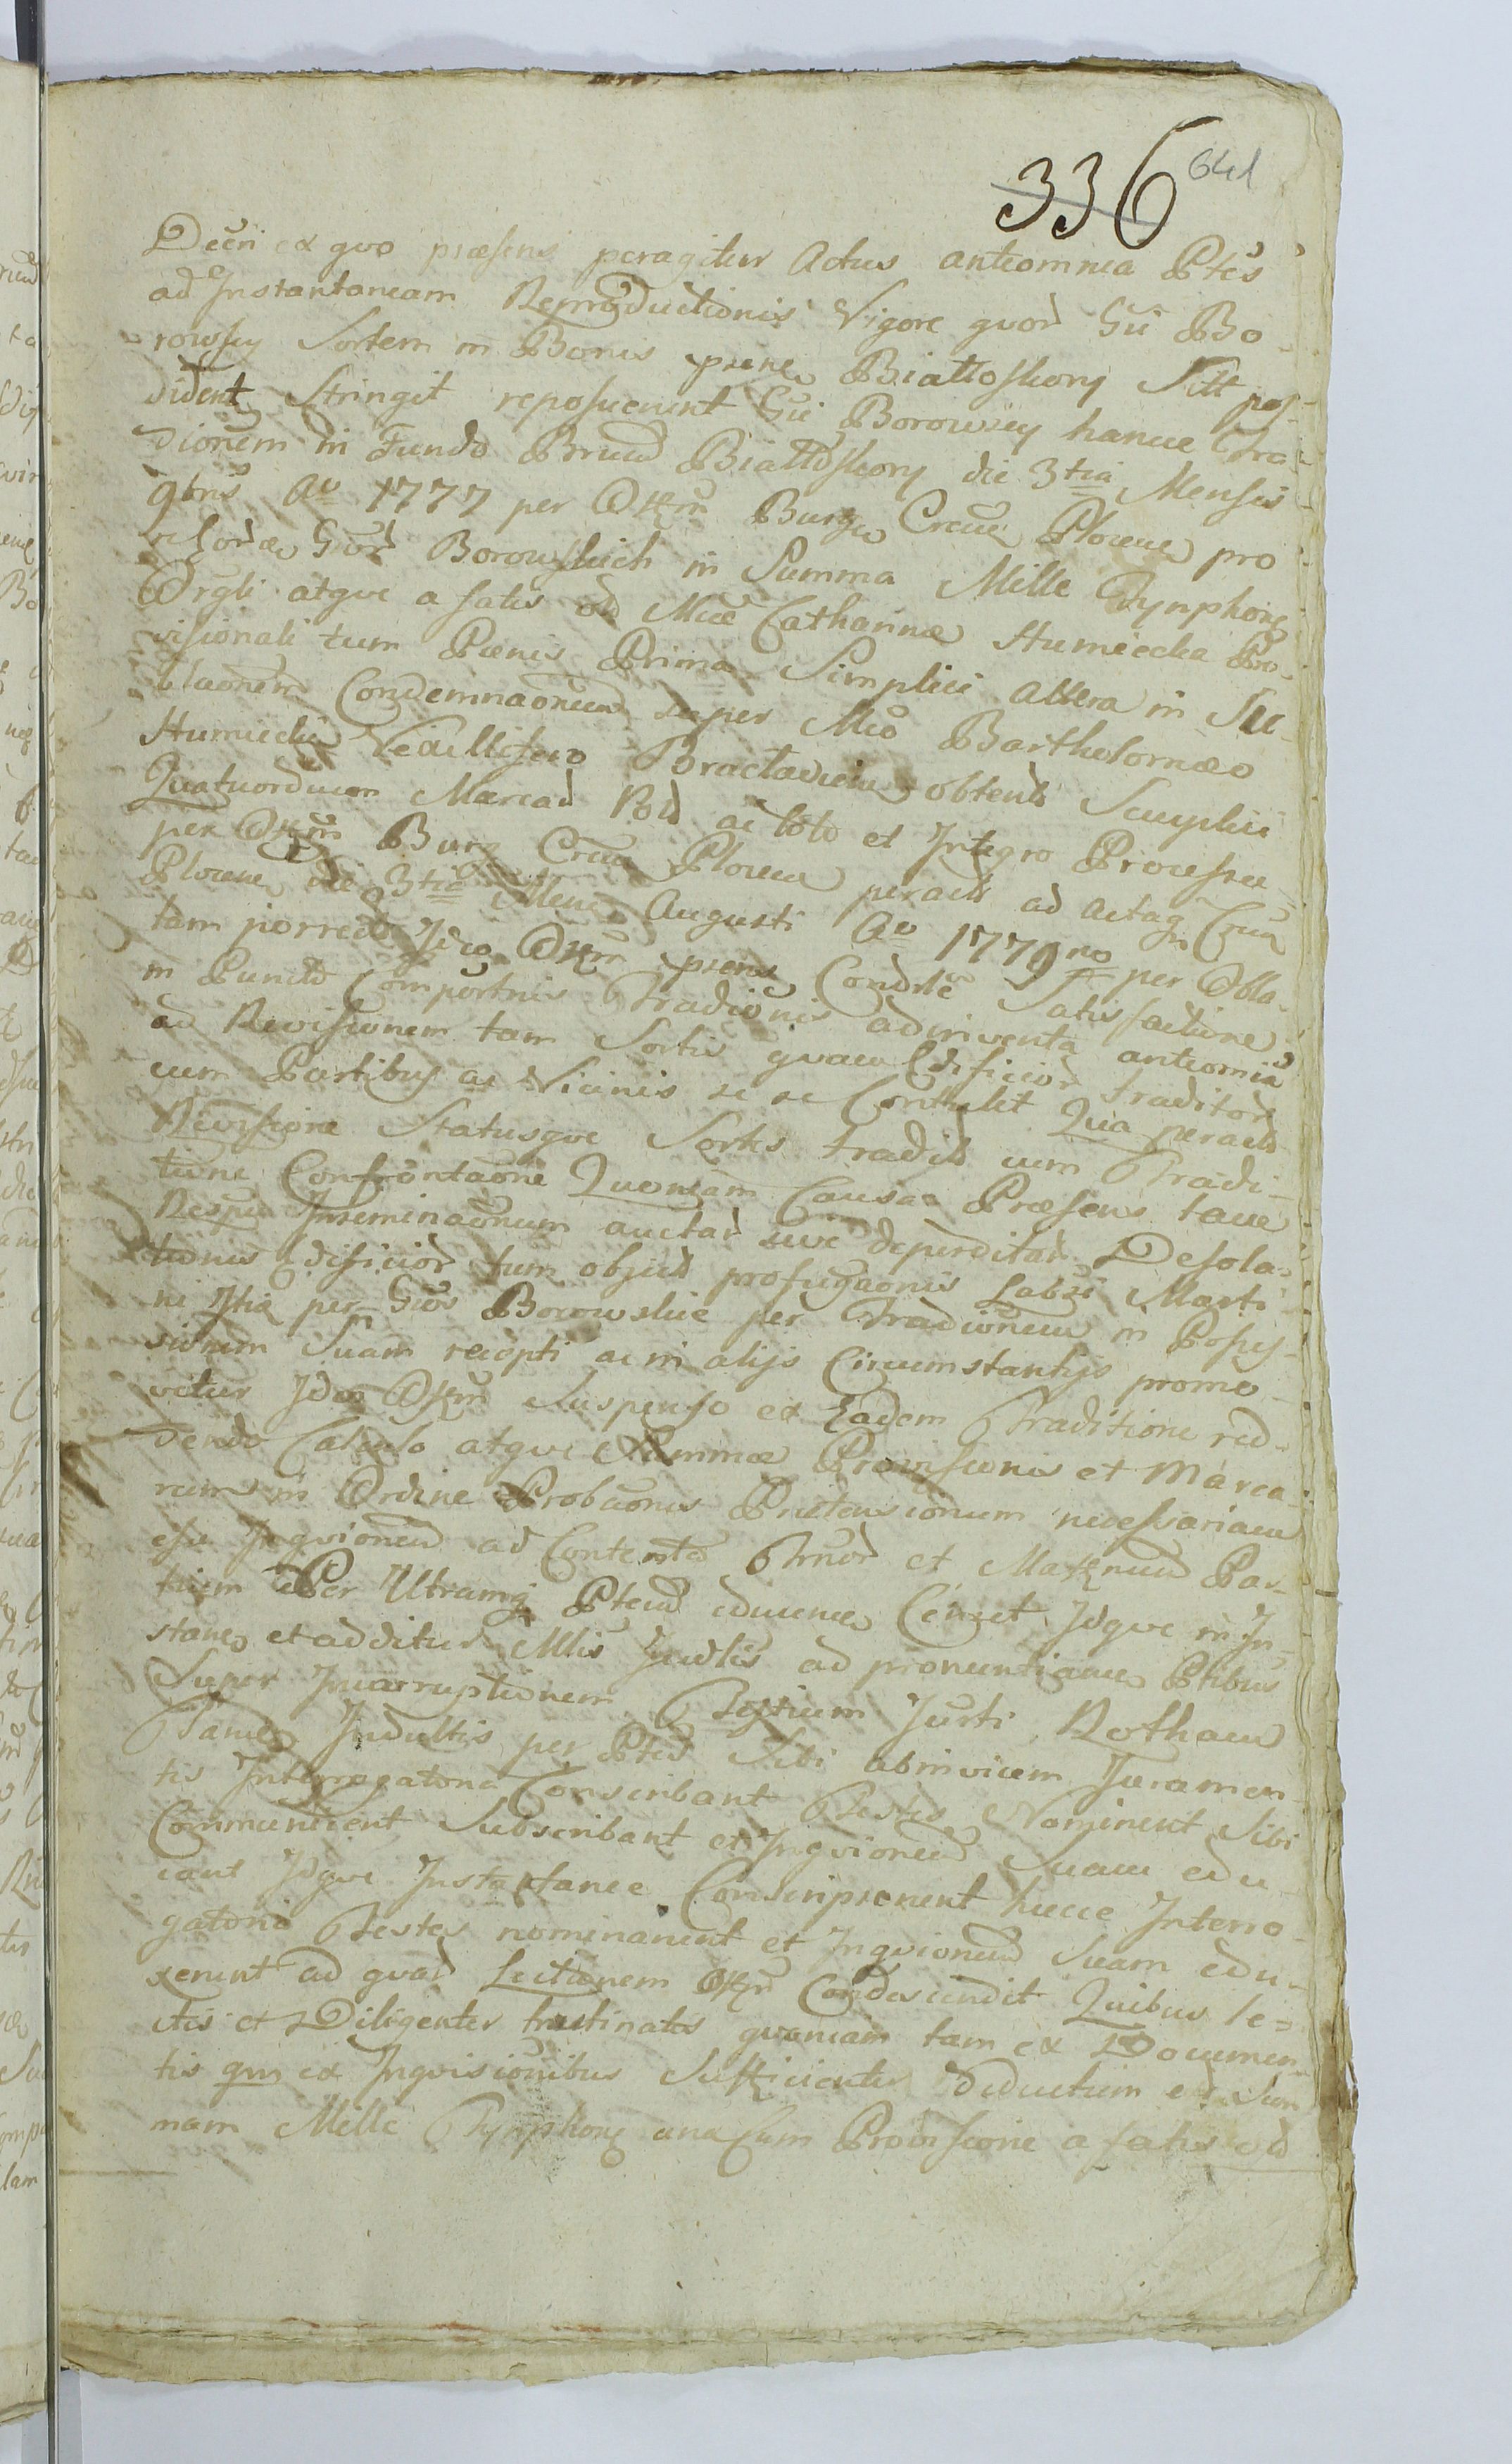 336 641
Decri ex quo præsens peragitur Actus anteomnia Ptes
ad Instantaneam Reproductionis Vigore quor Gsi Bo-
rowscy Sortem in Bonis psene Białłoskory Sitt pos-
sident Stringit reposuerunt Gsi Borowscy hancce Tra-
dionem in Fundo Bnrum Białłoskory die 3tia Mensis
9bris Ao 1777 per Offm Burg Crem Plocen pro
Gsor Borowskich in Summa Mille Tynphong
Orgli atque a satis od Mcæ Catharinæ Humiecka Pro-
visionali tum Pænis Prima Simplici altera in Su-
Condemnaonum super Mco Bartholomæo
Humiecki Vexillifero Bractavien obtent Scuplici
Quatuordecim Marcar Pol ac toto et Integro Processu
per Offm Burg Crem Plocen peract ad actaq Crem
Plocen die 3tia Mens Augusti Ao 1779no per Obla-
tam porrect Ideo Offm psens Condsle Satisfactione
in Puncto Comportnis Tradionis adinventa anteomnia
ad Revisionem tam Sortis quam Ædificior Traditor
cum Partibus ac Vicinis se se Contulit Qua peracta
Revisione Statusque Sortis tradit cum Tradi-
tione Confrontaone Quoniam Causa Præsens tam
Respu Inseminaonum auctar sive deperditar Desola-
tionis Ædificior tum object profugaonis Labsi Marti-
ni Itia per Gsos Borowskie per Tradionem in Posses-
sionem Suam recepti ac in alijs Circumstantijs promo-
vetur Ideo Offm Suspenso ex Eadem Traditione red-
dendo Calculo atque Summæ Provisionis et Marca-
rum in Ordine Probaonis Prætensionum necessariam
esse Inqvionem ad Contenta Trmor et Mafnum Par-
tium Per Utramq Ptem educend Censet Idque in In-
stane et additur Mlis Jndlis ad pronuntiane Ptibus
Super Incorruptionem Testium Jurti Rotham
Tamq Indultis per Ptes Sibi abinvicem Juramen-
tis Interrogatoria Conscribant Testes Nominent Sibi
Communicent Subscribant et Inqvionem Suam edu-
cant Idque Instantanee Conscripserunt hæcce Interro-
gatoria Testes nominarunt et Inqvionem Suam edu-
xerunt ad quar Lectionem Offm Condescendit Quibus le-
ctis et Diligenter trutinatis quoniam tam ex Documen-
tis qm ex Inqvisionibus Sufficienter deductum est Sum-
mam Mille Tynphong una Cum Provisione a satis od